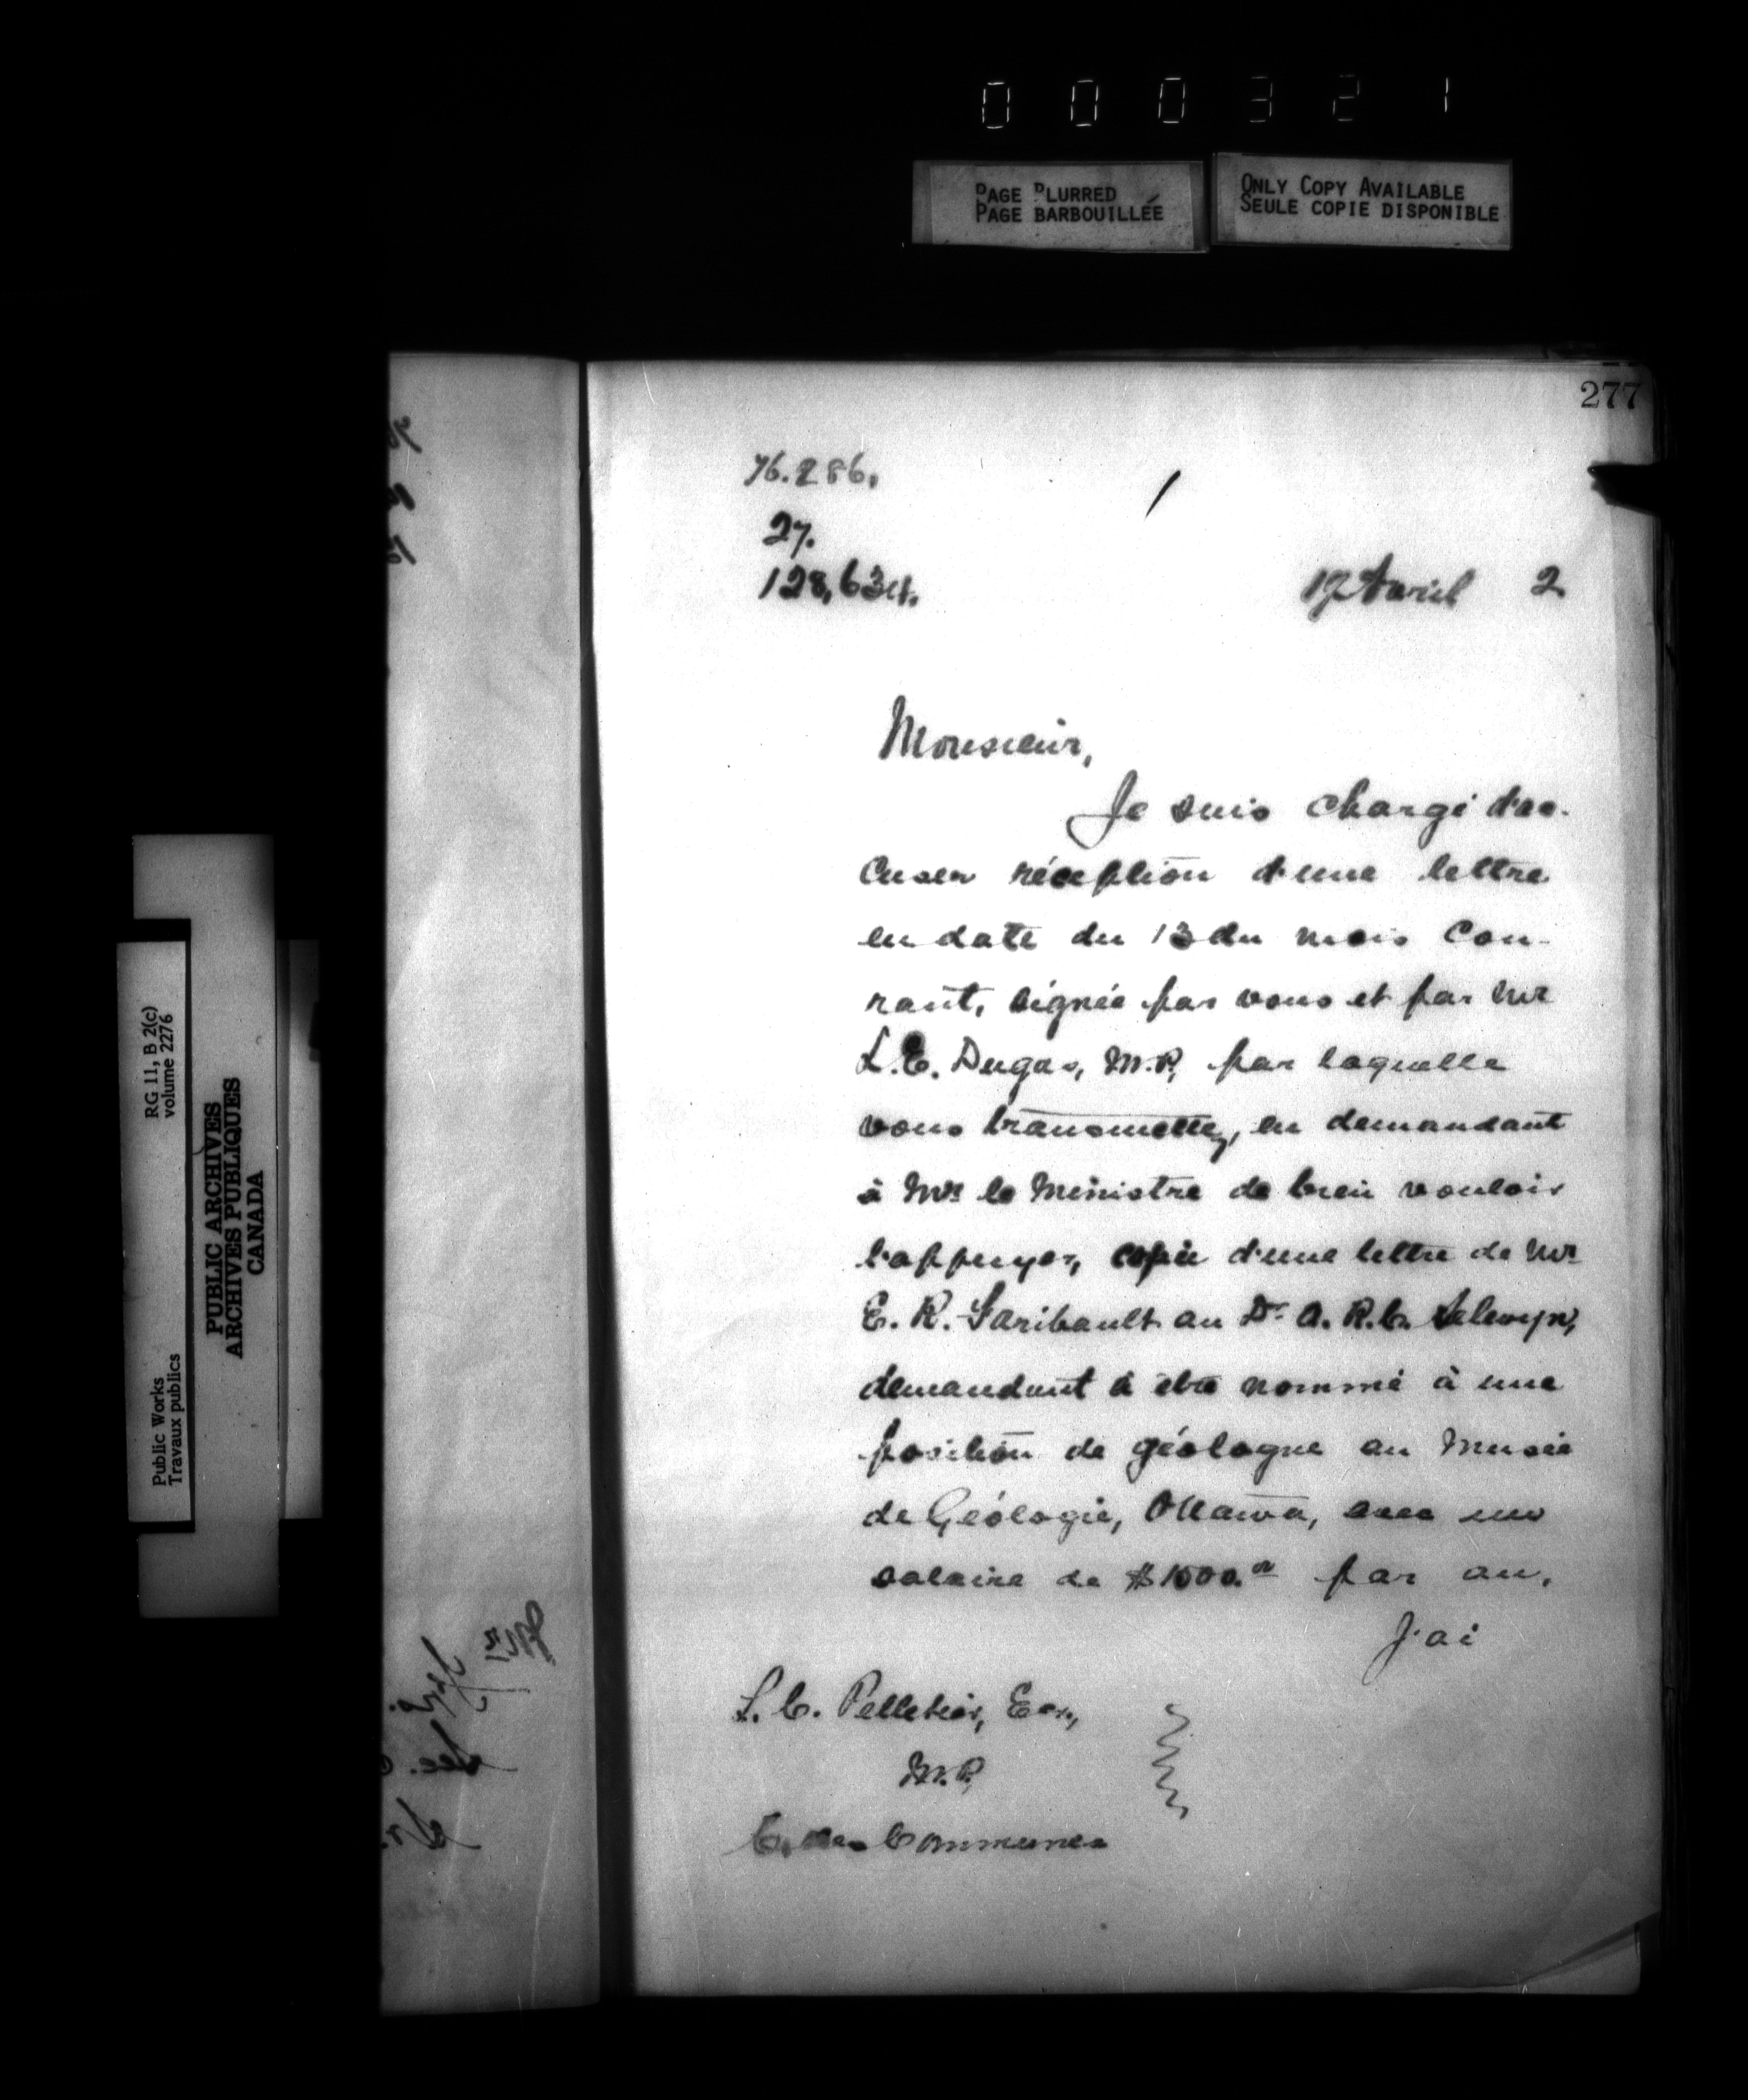 000321
PAGE BLURRED
PAGE BARBOUILLÉE
ONLY COPY AVAILABLE
SEULE COPIE DISPONIBLE
277
76.286.
27.
128,634.
17 Avril 2
Monsieur,
Je suis chargé d'ac-
cuser réception d'une lettre
en date du 13 du mois cou-
rant, signée par vous et par Mr
L.E. Dugas, M.P, par laquelle
vous transmettez, en demandant
à Mr le Ministre de bien vouloir
l'appuyer, copie d'une lettre de Mr
E. R. Faribault au Dr A. R. C. Selwyn,
demandant à être nommé à une
position de géologue au Musée
de Géologie, Ottawa, avec un
salaire de $1500.00 par an.
J'ai
L. C. Pelletier, Ecr.,
M.P.
C. des Communes
RG 11, B 2(c)
volume 2276
Public Works
Travaux publics
PUBLIC ARCHIVES
ARCHIVES PUBLIQUES
CANADA